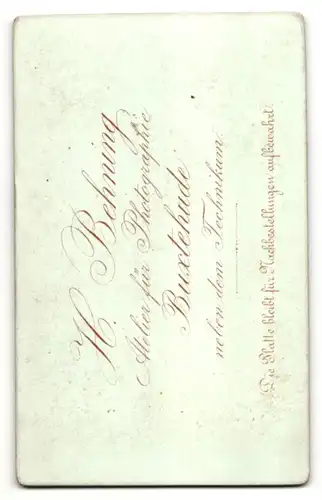 H. Behning
Atelier für Photographie
Buxtehude
neben dem Technikum.
Die Platte bleibt für Nachbestellungen aufbewahrt.